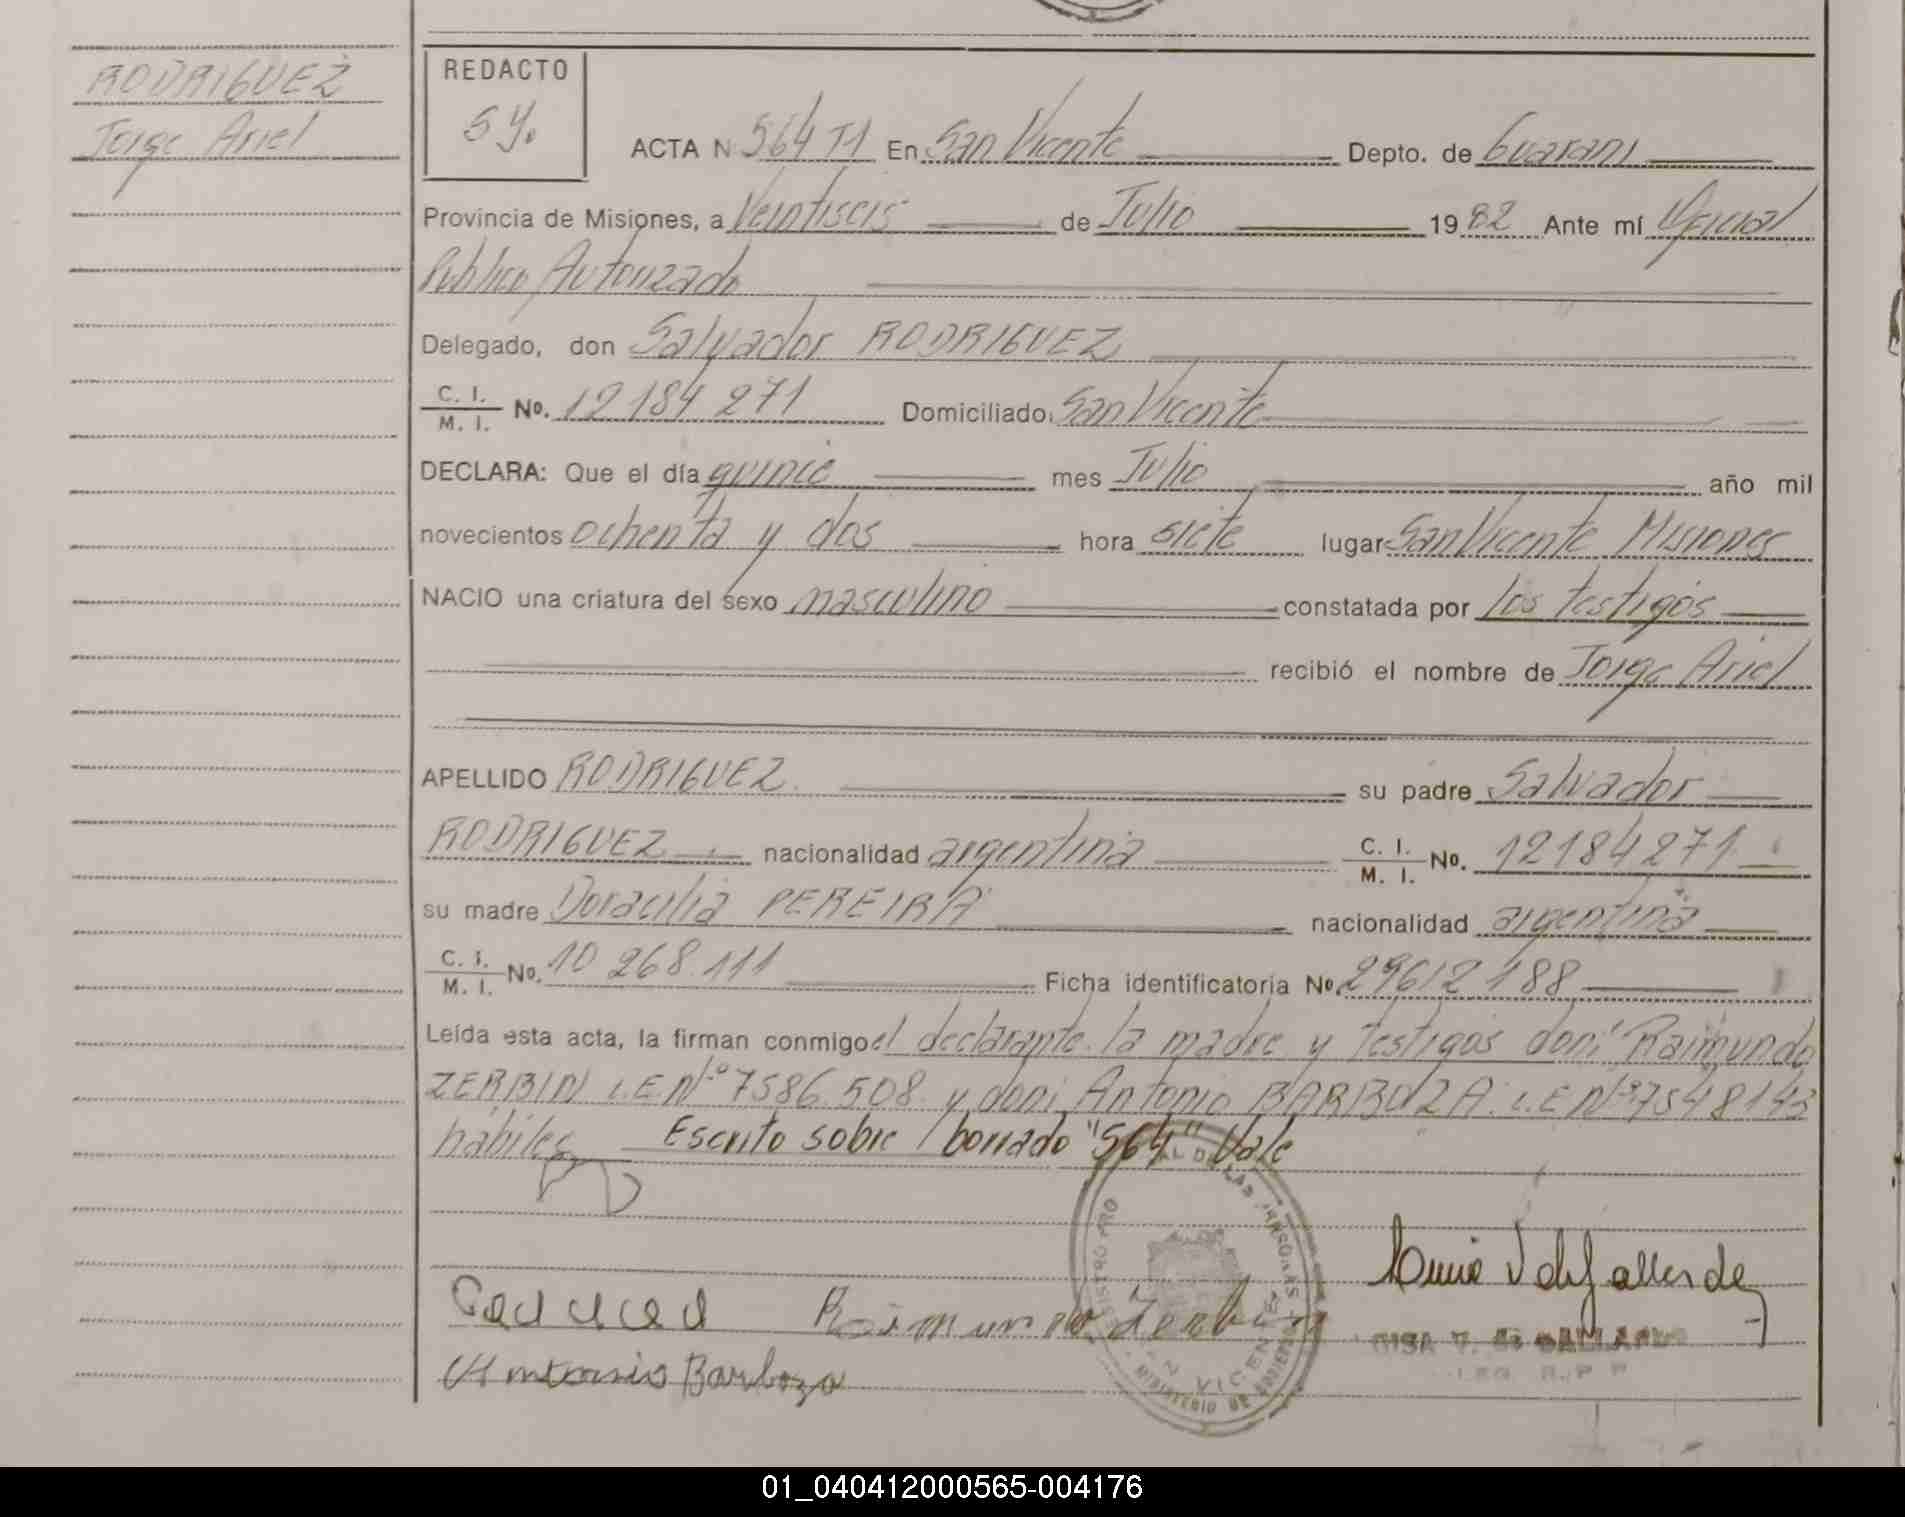 RODRIGUEZ
Jorge Ariel
REDACTO
ACTA N 564 T1 En San Vicente Depto. de Guarani
Provincia de Misiones, a Veintiseis de Julio 1982 Ante mí Oficial
Publico Autorizado
Delegado, don Salvador RODRIGUEZ
C. I. / M. I. No. 12184271 Domiciliado San Vicente
DECLARA: Que el día quince mes Julio año mil
novecientos ochenta y dos hora siete lugar San Vicente Misiones
NACIO una criatura del sexo masculino constatada por los testigos
recibió el nombre de Jorge Ariel
APELLIDO RODRIGUEZ su padre Salvador
RODRIGUEZ nacionalidad argentina C. I. / M. I. No. 12184271
su madre Doracilia PEREIRA nacionalidad argentina
C. I. / M. I. No. 10 268.111 Ficha identificatoria No. 29612188
Leída esta acta, la firman conmigo el declarante la madre y testigos don: Raimundo
ZERBIN L.E.Nº 7586.508 y don: Antonio BARBOZA L.E Nº 7548143
hábiles Escrito sobre borrado "564" Vale
Raimundo Zerbin
Antonio Barboza
SAN VICENTE
01_040412000565-004176